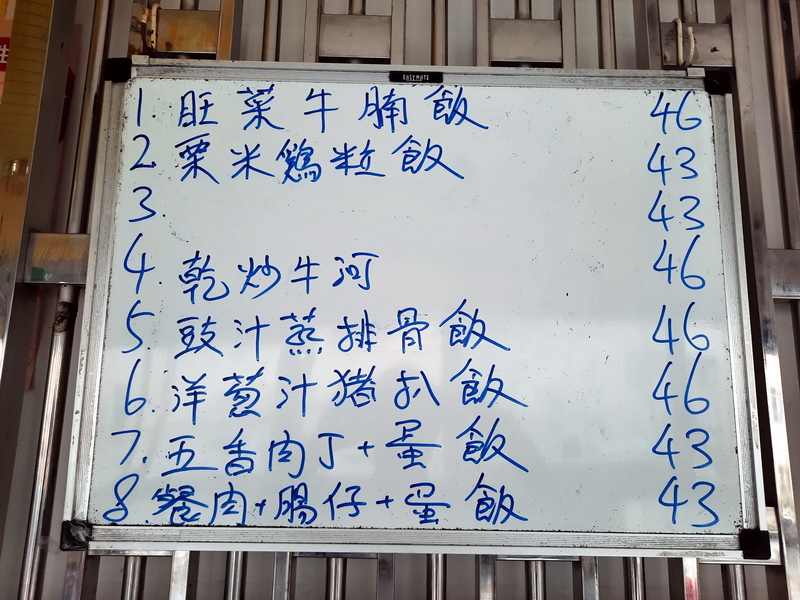 EASYMATE
1. 旺菜牛腩飯 46
2 粟米鷄粒飯 43
3. 43
4. 乾炒牛河 46
5. 豉汁蒸排骨飯 46
6. 洋葱汁豬扒飯 46
7. 五香肉丁+蛋飯 43
8. 餐肉+腸仔+蛋飯 43